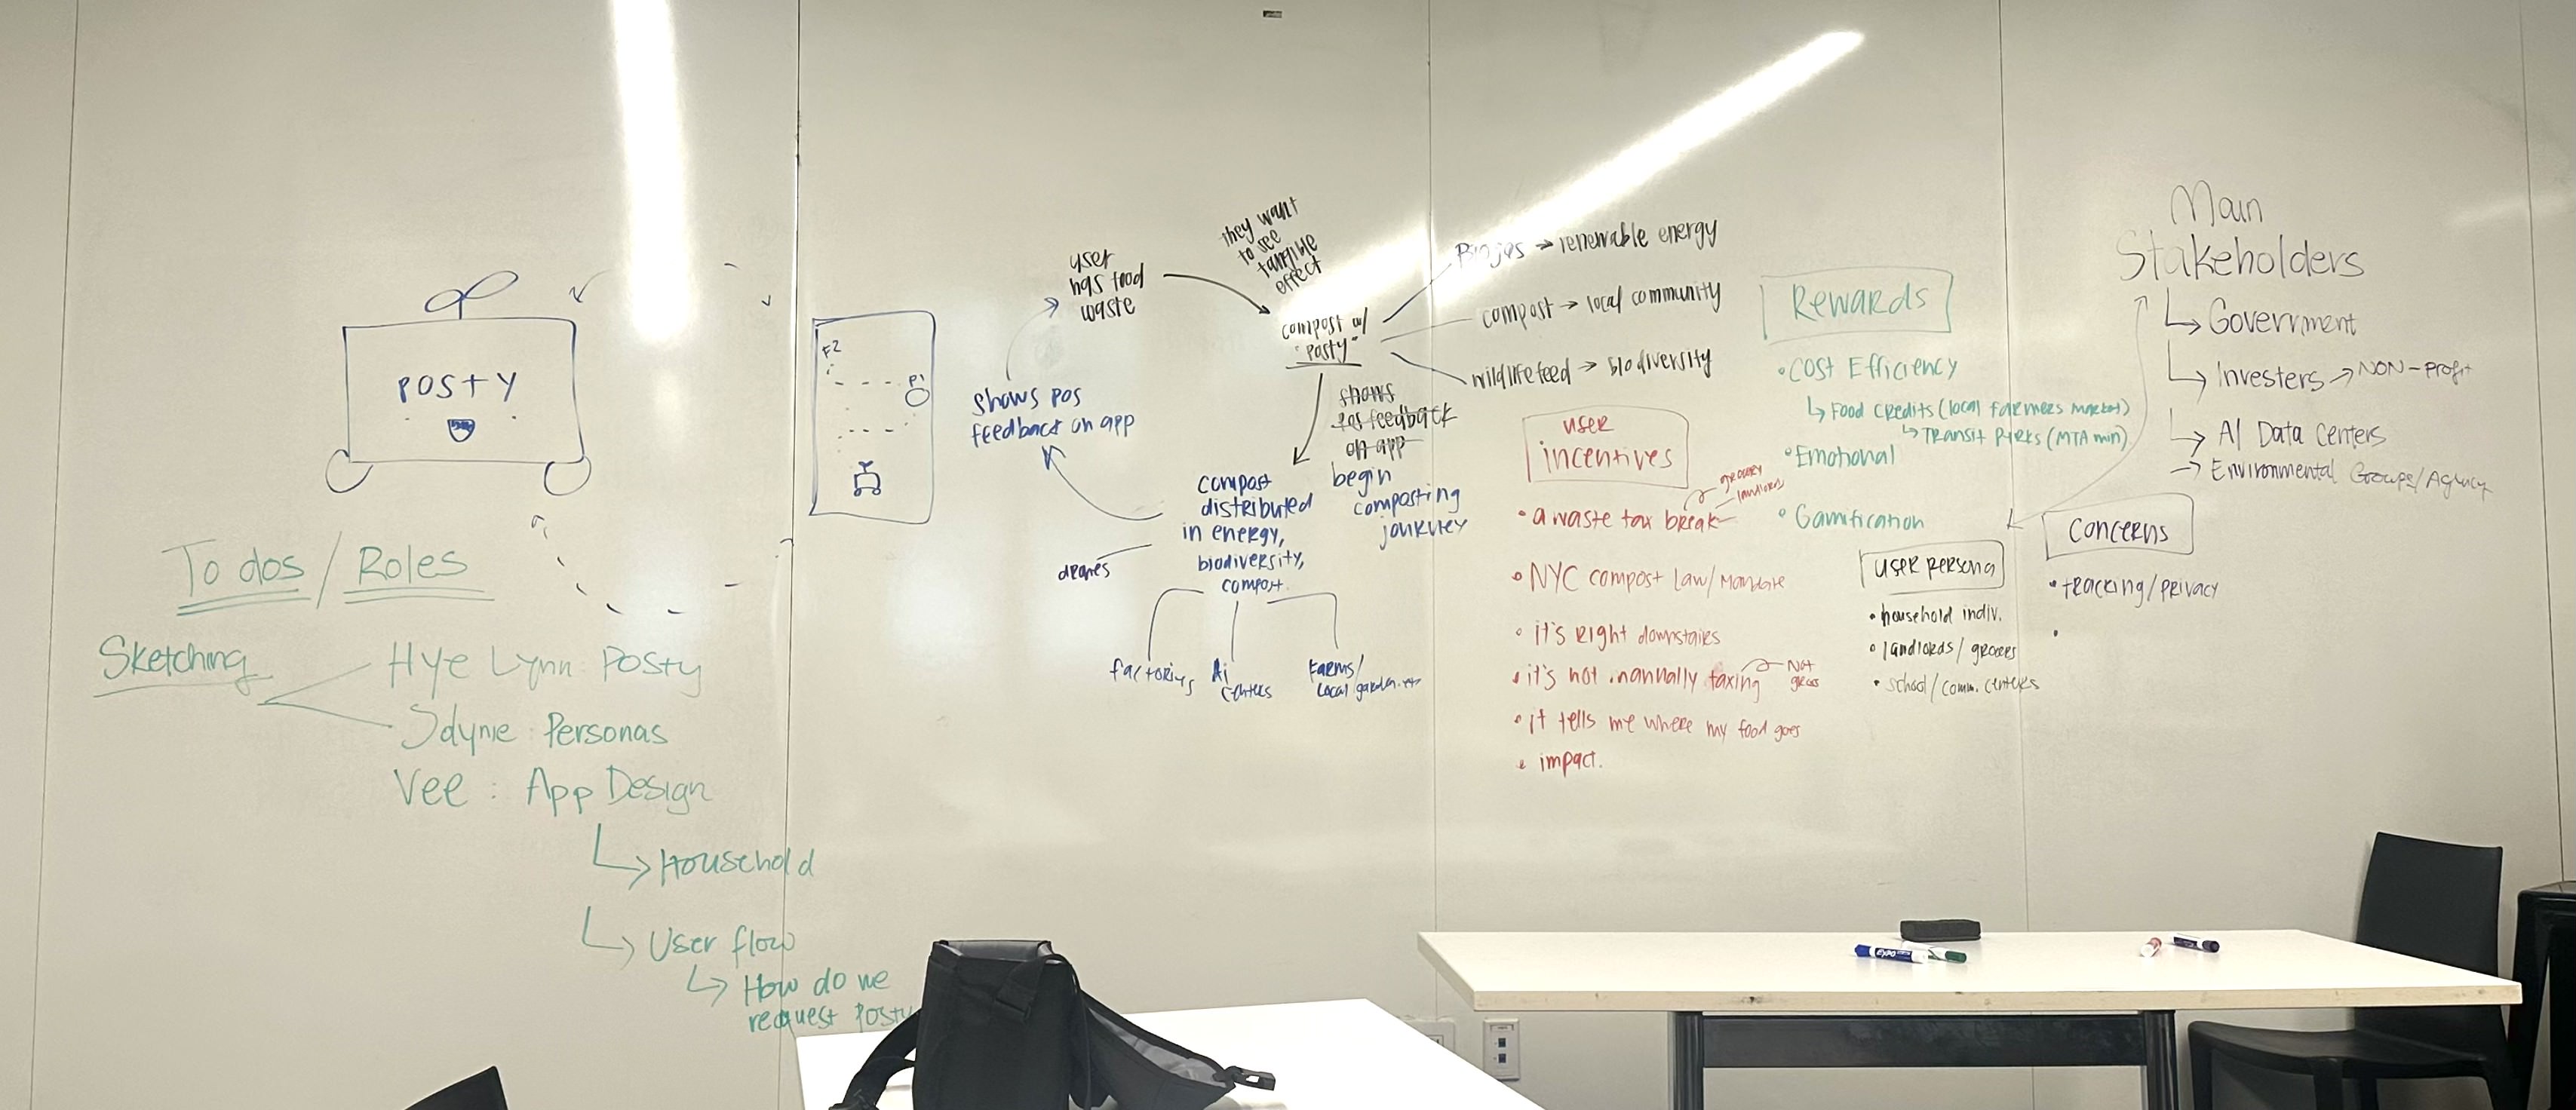 POSTY
To dos / Roles
Sketching
Hye Lynn: Posty
Jdynie: Personas
Vee : App Design
Household
User flow
How do we
request Posty
F2
P1
user
has food
waste
they want
to see
tangible
effect
compost w/
"Posty"
shows
feedback
on app
begin
composting
journey
compost
distributed
in energy,
biodiversity,
compost.
drones
factories
Ai
centers
Farms/
local garden
shows pos
feedback on app
Biogas → renewable energy
compost → local community
wildlife feed → biodiversity
user
incentives
• a waste tax break
grocery
landlords
• NYC compost law/Mandate
• it's right downstairs
• it's not manually taxing
Not
gross
• it tells me where my food goes
• impact.
Rewards
• Cost Efficiency
Food Credits (local farmers market)
Transit Perks (MTA min)
• Emotional
• Gamification
user persona
• household indiv.
• landlords/ grocers
• school/comm. centers
Concerns
• tracking/privacy
•
Main
Stakeholders
Government
Investers → NON-profit
AI Data Centers
Environmental Groups/Agency